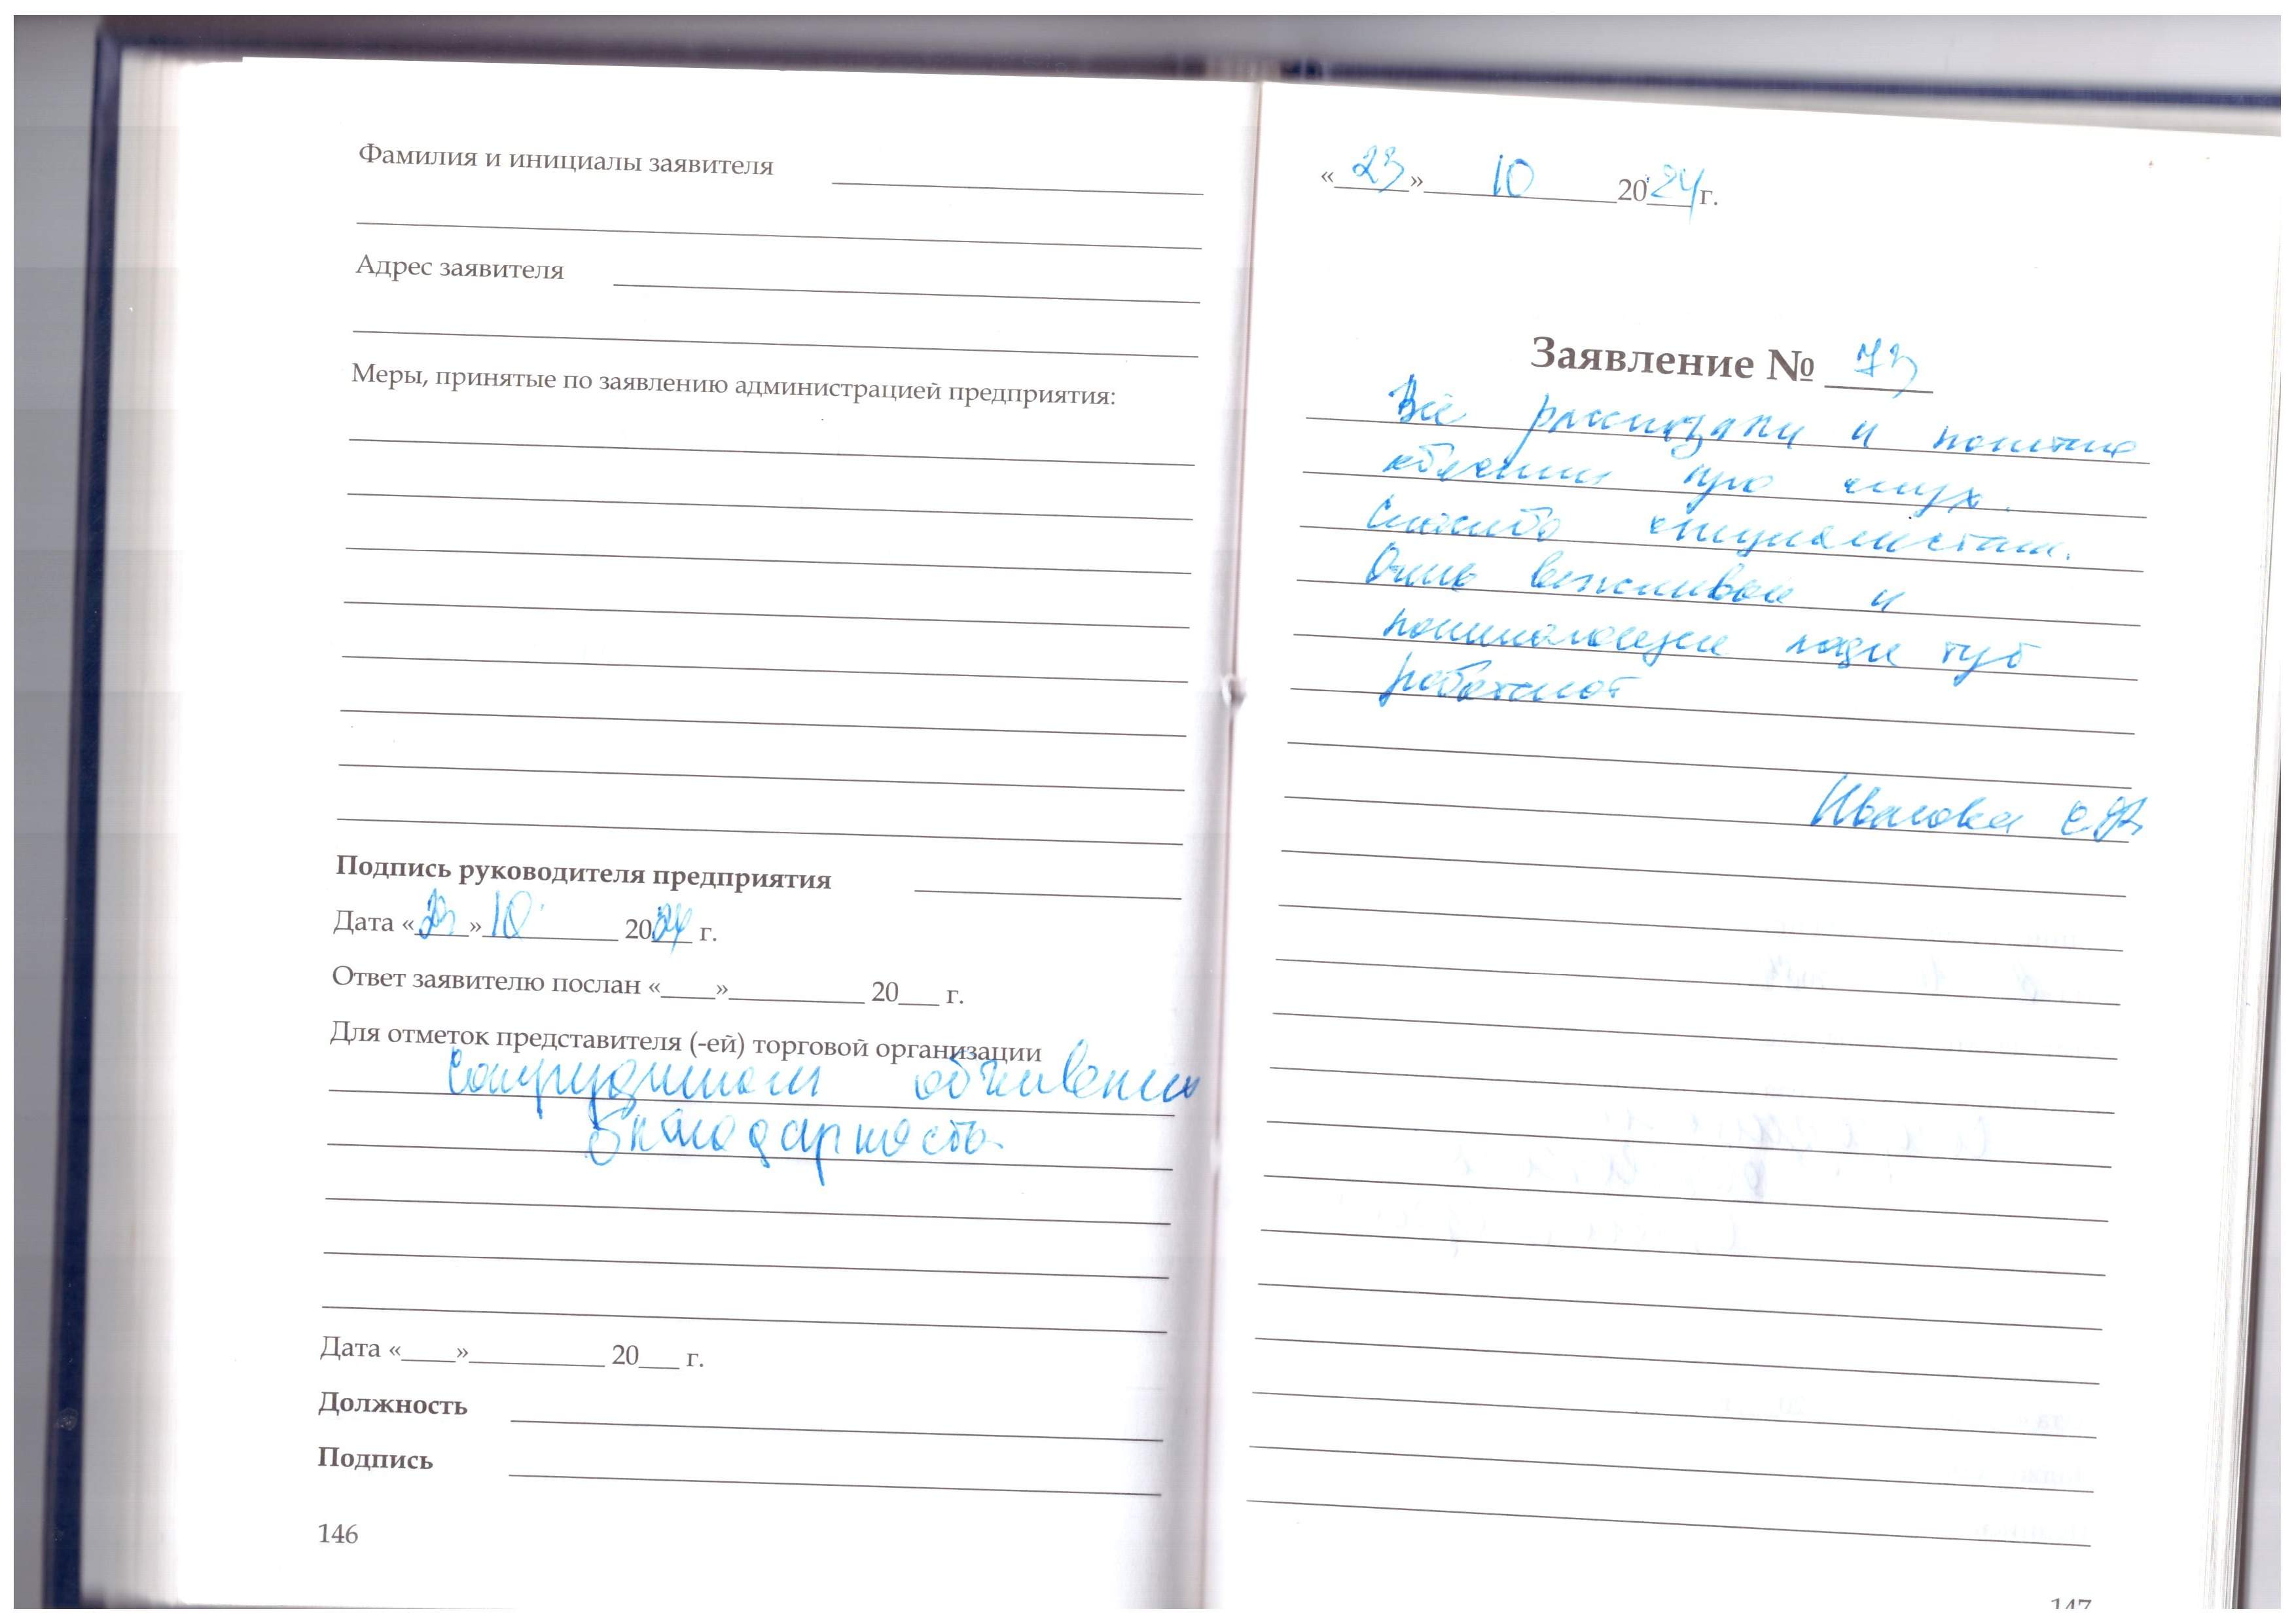 Фамилия и инициалы заявителя
Адрес заявителя
Меры, принятые по заявлению администрацией предприятия:
Подпись руководителя предприятия
Дата «23» 10 2024 г.
Ответ заявителю послан «____»__________ 20___ г.
Для отметок представителя (-ей) торговой организации
Сотрудникам объявлена
благодарность
Дата «____»__________ 20___ г.
Должность
Подпись
146
«23» 10 2024 г.
Заявление № 73
Всё рассказали и понятно
про слух.
Спасибо специалистам.
Очень и
понимающие люди тут
работают
147